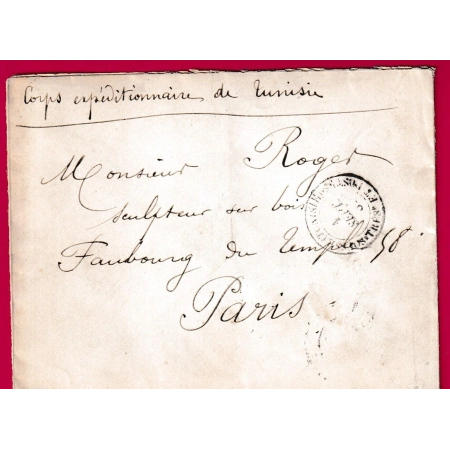 Corps expéditionnaire de Tunisie
Monsieur Roger
sculpteur sur bois
Faubourg du Temple 58
Paris